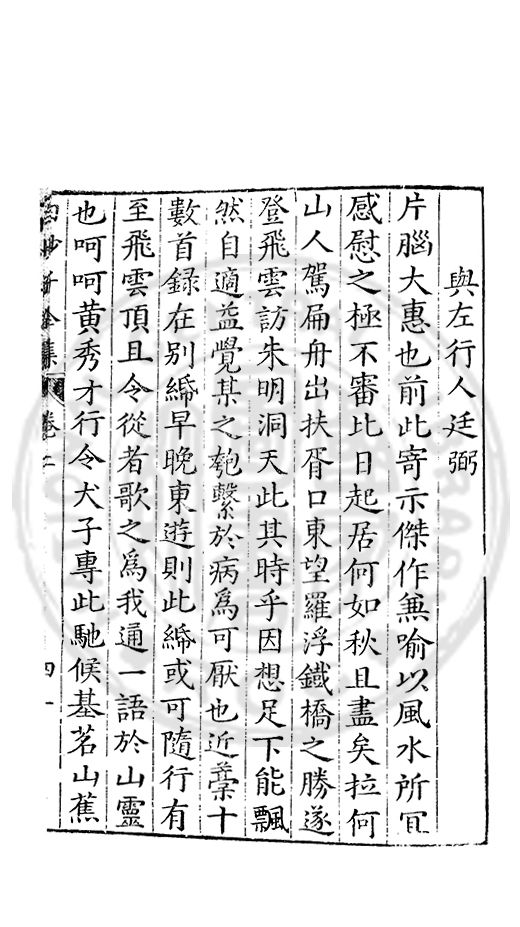 與左行人廷弼
片腦大惠也前此寄示傑作兼喻以風水所冝
感慰之極不審比日起居何如秋且盡矣拉何
山人駕扁舟出扶胥口東望羅浮鐵橋之勝遂
登飛雲訪朱明洞天此其時乎因想足下能飄
然自適益覺某之匏繫於病爲可厭也近藁十
數首録在别𥿄早晚東遊則此𥿄或可隨行有
至飛雲頂且令從者歌之爲我通一語於山靈
也呵呵黄秀才行令犬子專此馳候基茗山蕉
白沙子全集 卷二 四一